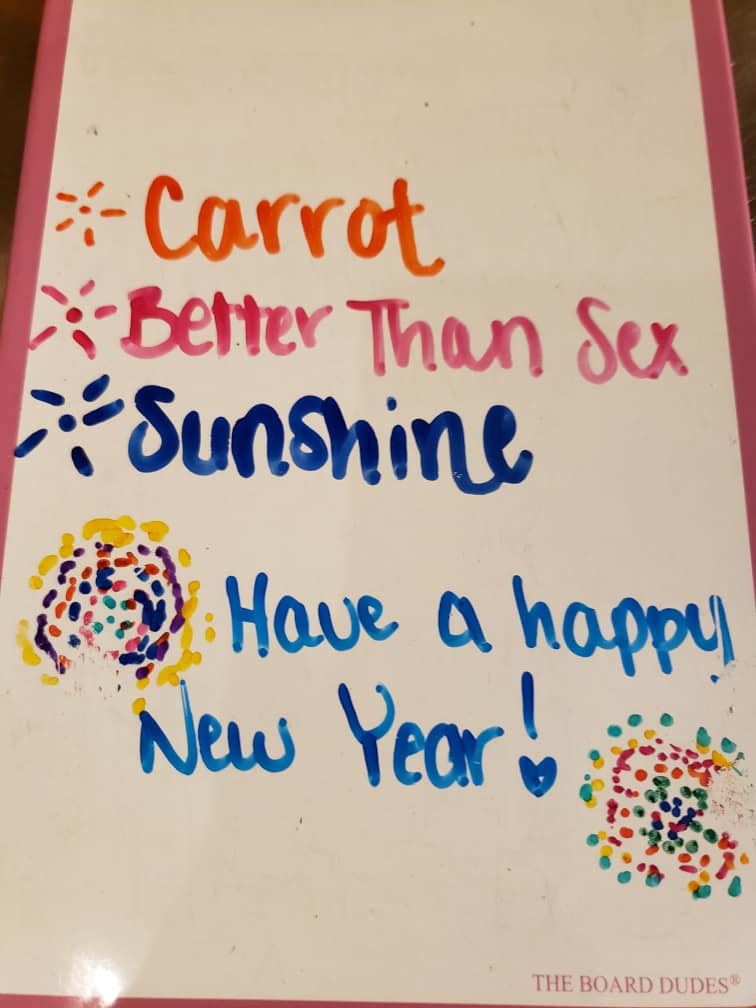 Carrot
Better Than Sex
Sunshine
Have a happy
New Year!
THE BOARD DUDES®